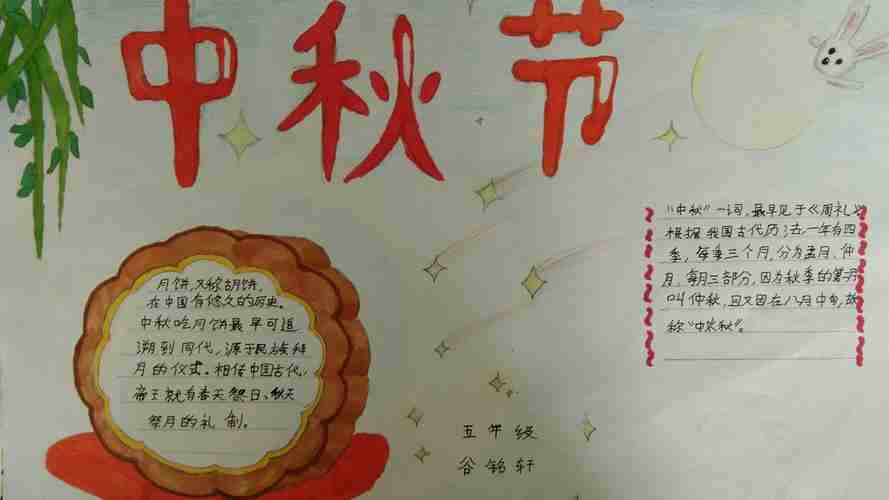 中秋节
月饼,又称胡饼,
在中国有悠久的历史。
中秋吃月饼最早可追
溯到周代,源于民族拜
月的仪式。相传中国古代,
帝王就有春天祭日、秋天
祭月的礼制。
"中秋"一词,最早见于《周礼》
根据我国古代历法,一年有四
季,每季三个月,分为孟月、仲
月、每月三部分,因为秋季的第一月
叫仲秋,且又因在八月中旬,故
称"中秋"。
五年级
谷铭轩